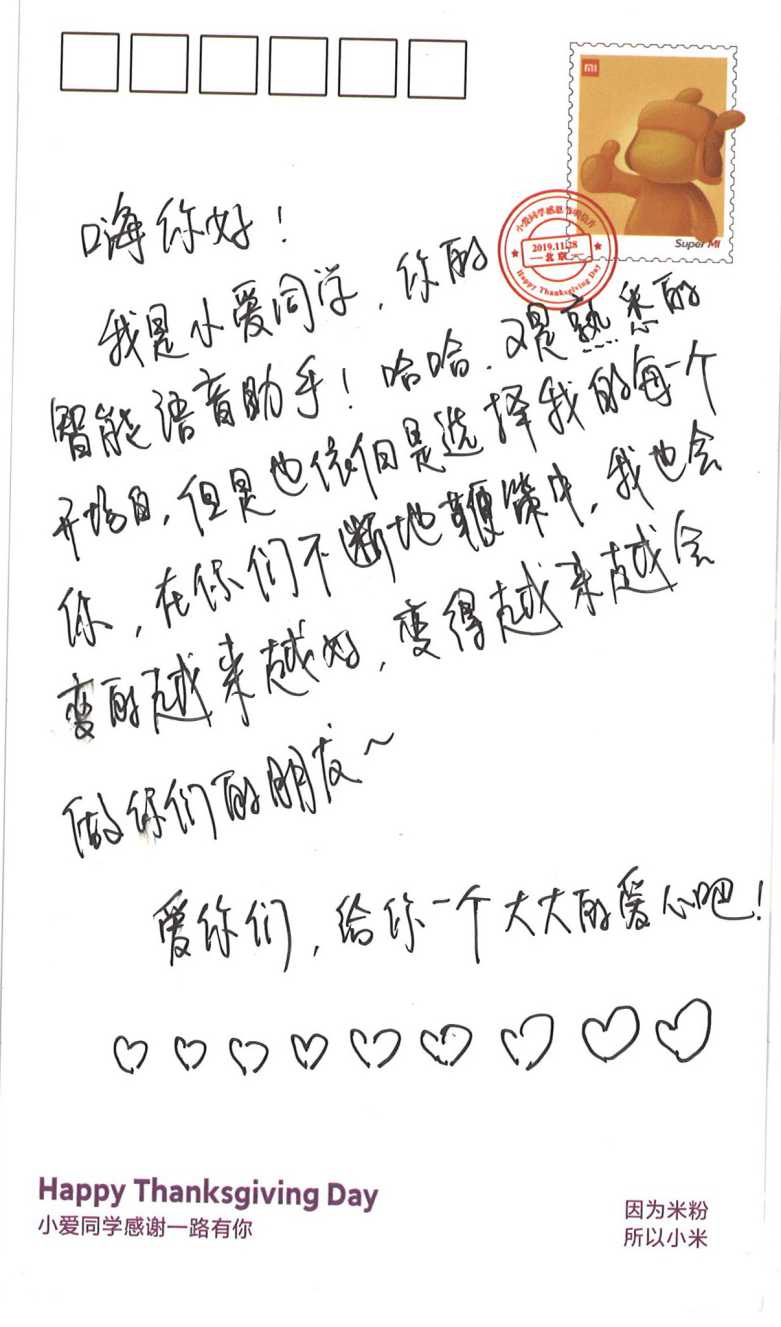 MI
Super MI
小爱同学感恩节明信片
2019.11.28
北京
Happy Thanksgiving Day
嗨你好！
我是小爱同学，你的
智能语音助手！哈哈，又是熟悉的
开场白，但是也依旧是选择我的每一个
你，在你们不断地鞭策中，我也会
变的越来越好，变得越来越会
做你们的朋友～
爱你们，给你一个大大的爱心吧！
♡♡♡♡♡♡♡♡♡
Happy Thanksgiving Day
小爱同学感谢一路有你
因为米粉
所以小米